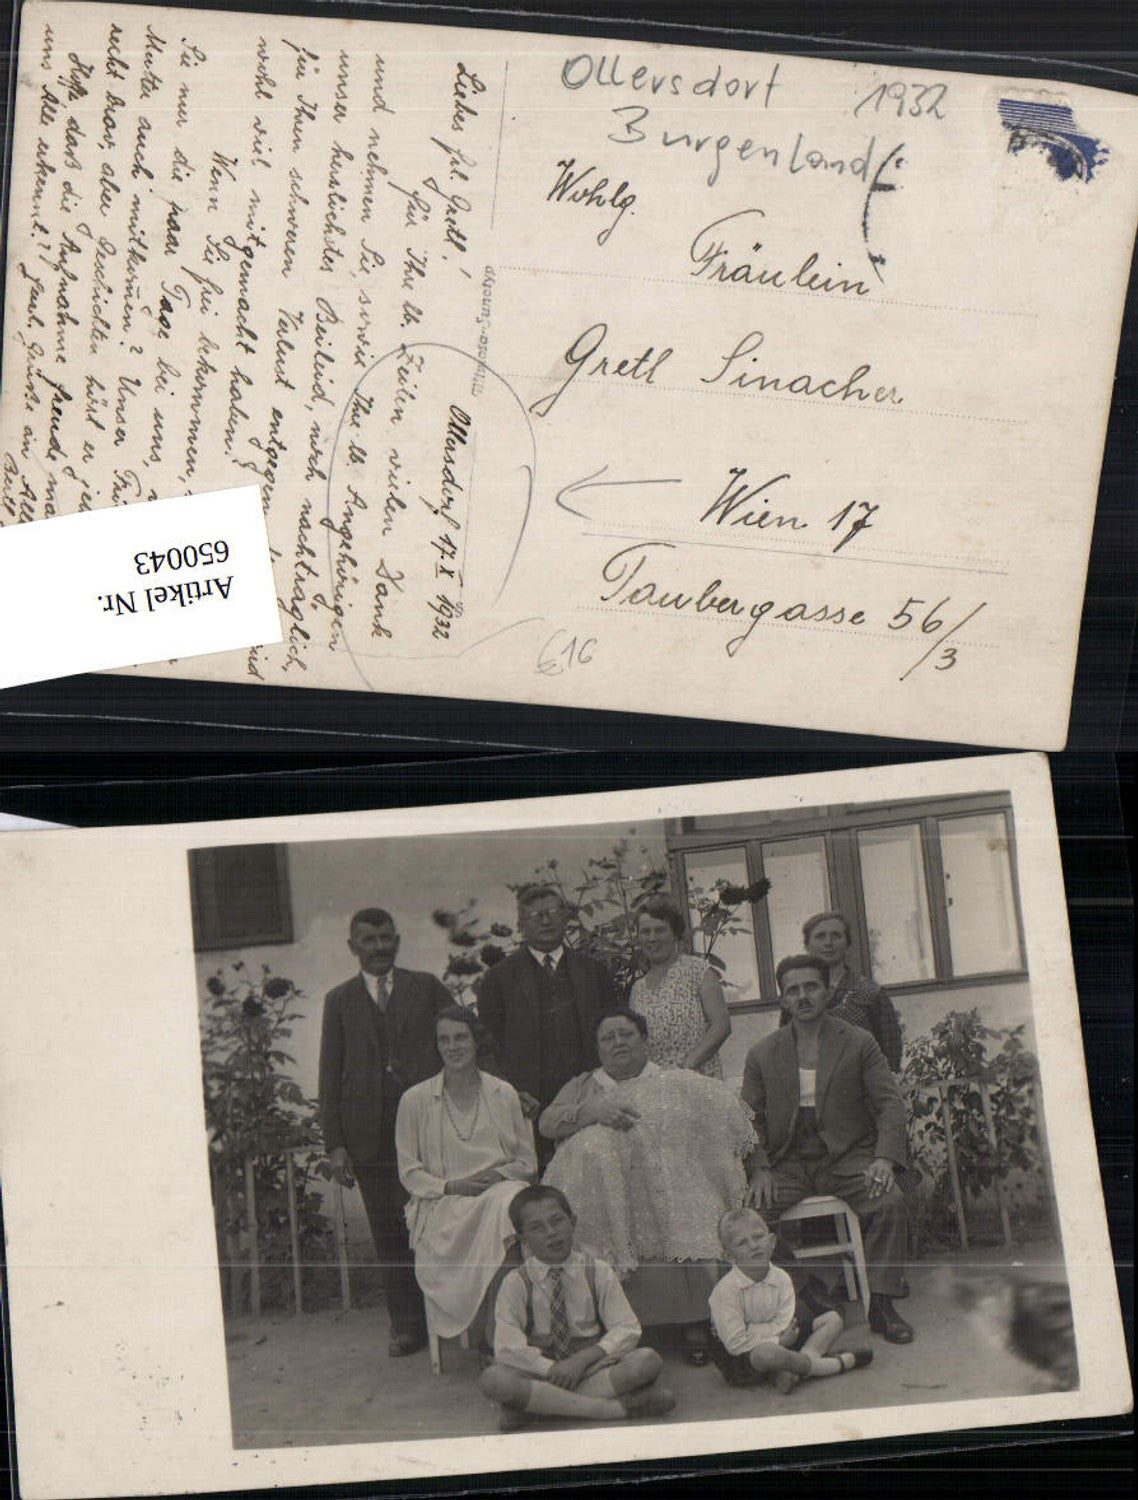 Ollersdorf 1932
Burgenland
Wohlg.
Fräulein
Gretl Sinacher
Wien 17
Taubergasse 56/3
616
Ollersdorf 17.X 1932
Liebes Frl. Gretl!
Für Ihre lb. Zeilen vielen Dank
und nehmen Sie, sowie Ihre lb. Angehörigen
unser herzlichstes Beileid, noch nachträglich,
für Ihren schweren Verlust entgegen.
wohl viel mitgemacht haben.
Wenn Sie frei bekommen,
Sie nur die paar Tage bei uns,
Mutter auch mitkommen? Unser
recht brav, aber Geschichten hörst er
Hoffe dass die Aufnahme Freude
uns Alle erkennt? Grüße an Alle
Artikel Nr.
650043